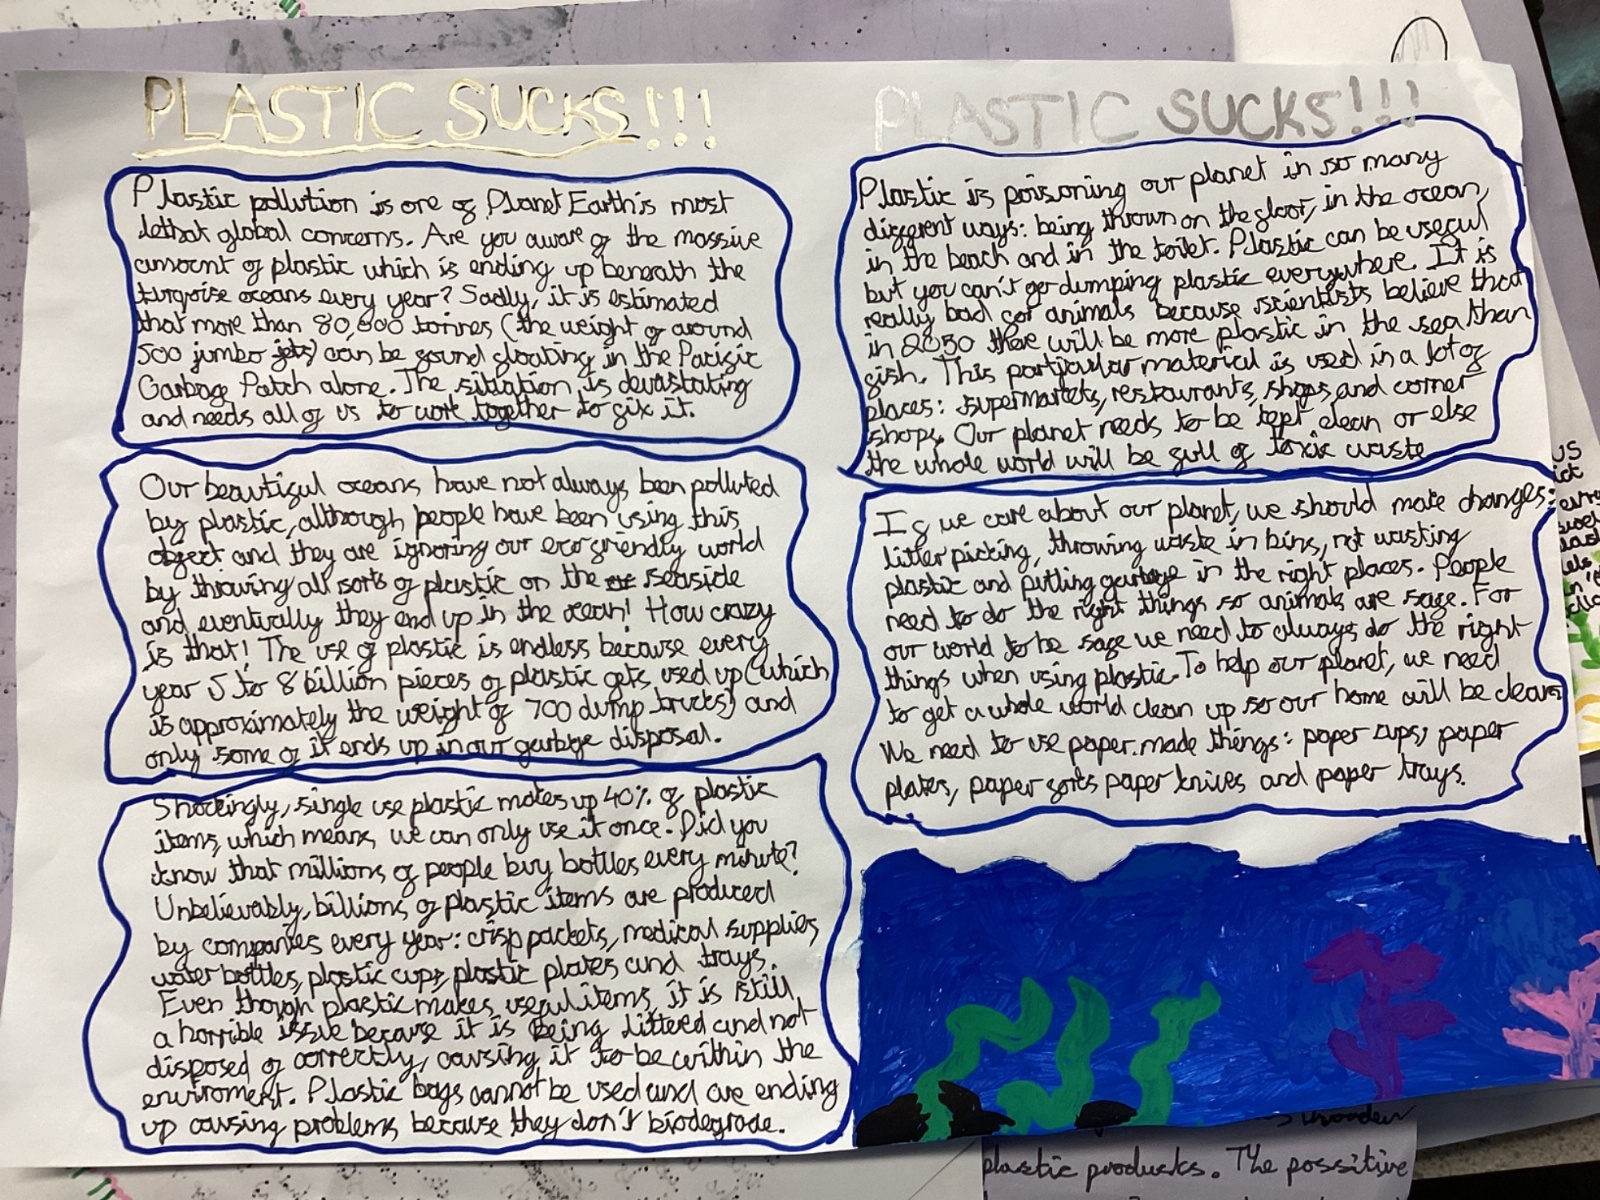 PLASTIC SUCKS!!!
Plastic pollution is one of Planet Earth's most
lethal global concerns. Are you aware of the massive
amount of plastic which is ending up beneath the
turqoise oceans every year? Sadly, it is estimated
that more than 80,000 tonnes (the weight of around
500 jumbo jets) can be found floating in the Pacific
Garbage Patch alone. The sitiation is devastating
and needs all of us to work together to fix it.
Our beautiful oceans have not always been polluted
by plastic, although people have been using this
object and they are ignoring our eco friendly world
by throwing all sorts of plastic on the seaside
and eventually they end up in the ocean! How crazy
is that! The use of plastic is endless because every
year 5 to 8 billion pieces of plastic gets used up (which
is approximately the weight of 700 dump trucks) and
only some of it ends up in our garbage disposal.
Shockingly, single use plastic makes up 40% of plastic
items, which means we can only use it once. Did you
know that millions of people buy bottles every minute?
Unbelievably, billions of plastic items are produced
by companies every year: crisp packets, medical supplies,
water bottles, plastic cups, plastic plates and trays.
Even though plastic makes useful items, it is still
a horrible issue because it is being littered and not
disposed of correctly, causing it to be within the
enviroment. Plastic bags cannot be used and are ending
up causing problems because they don't biodegrade.
PLASTIC SUCKS!!!
Plastic is poisoning our planet in so many
different ways: being thrown on the floor, in the ocean,
in the beach and in the toilet. Plastic can be useful
but you can't go dumping plastic everywhere. It is
really bad for animals because scientists believe that
in 2050 there will be more plastic in the sea than
fish. This particular material is used in a lot of
places: supermarkets, restaurants, shops and corner
shops. Our planet needs to be kept clean or else
the whole world will be full of toxic waste
If we care about our planet, we should make changes:
litter picking, throwing waste in bins, not wasting
plastic and putting garbage in the right places. People
need to do the right things so animals are safe. For
our world to be safe we need to always do the right
things when using plastic. To help our planet, we need
to get a whole world clean up so our home will be clean.
We need to use paper made things: paper cups, paper
plates, paper forks paper knives and paper trays.
wooden
plastic produckts. The possitive